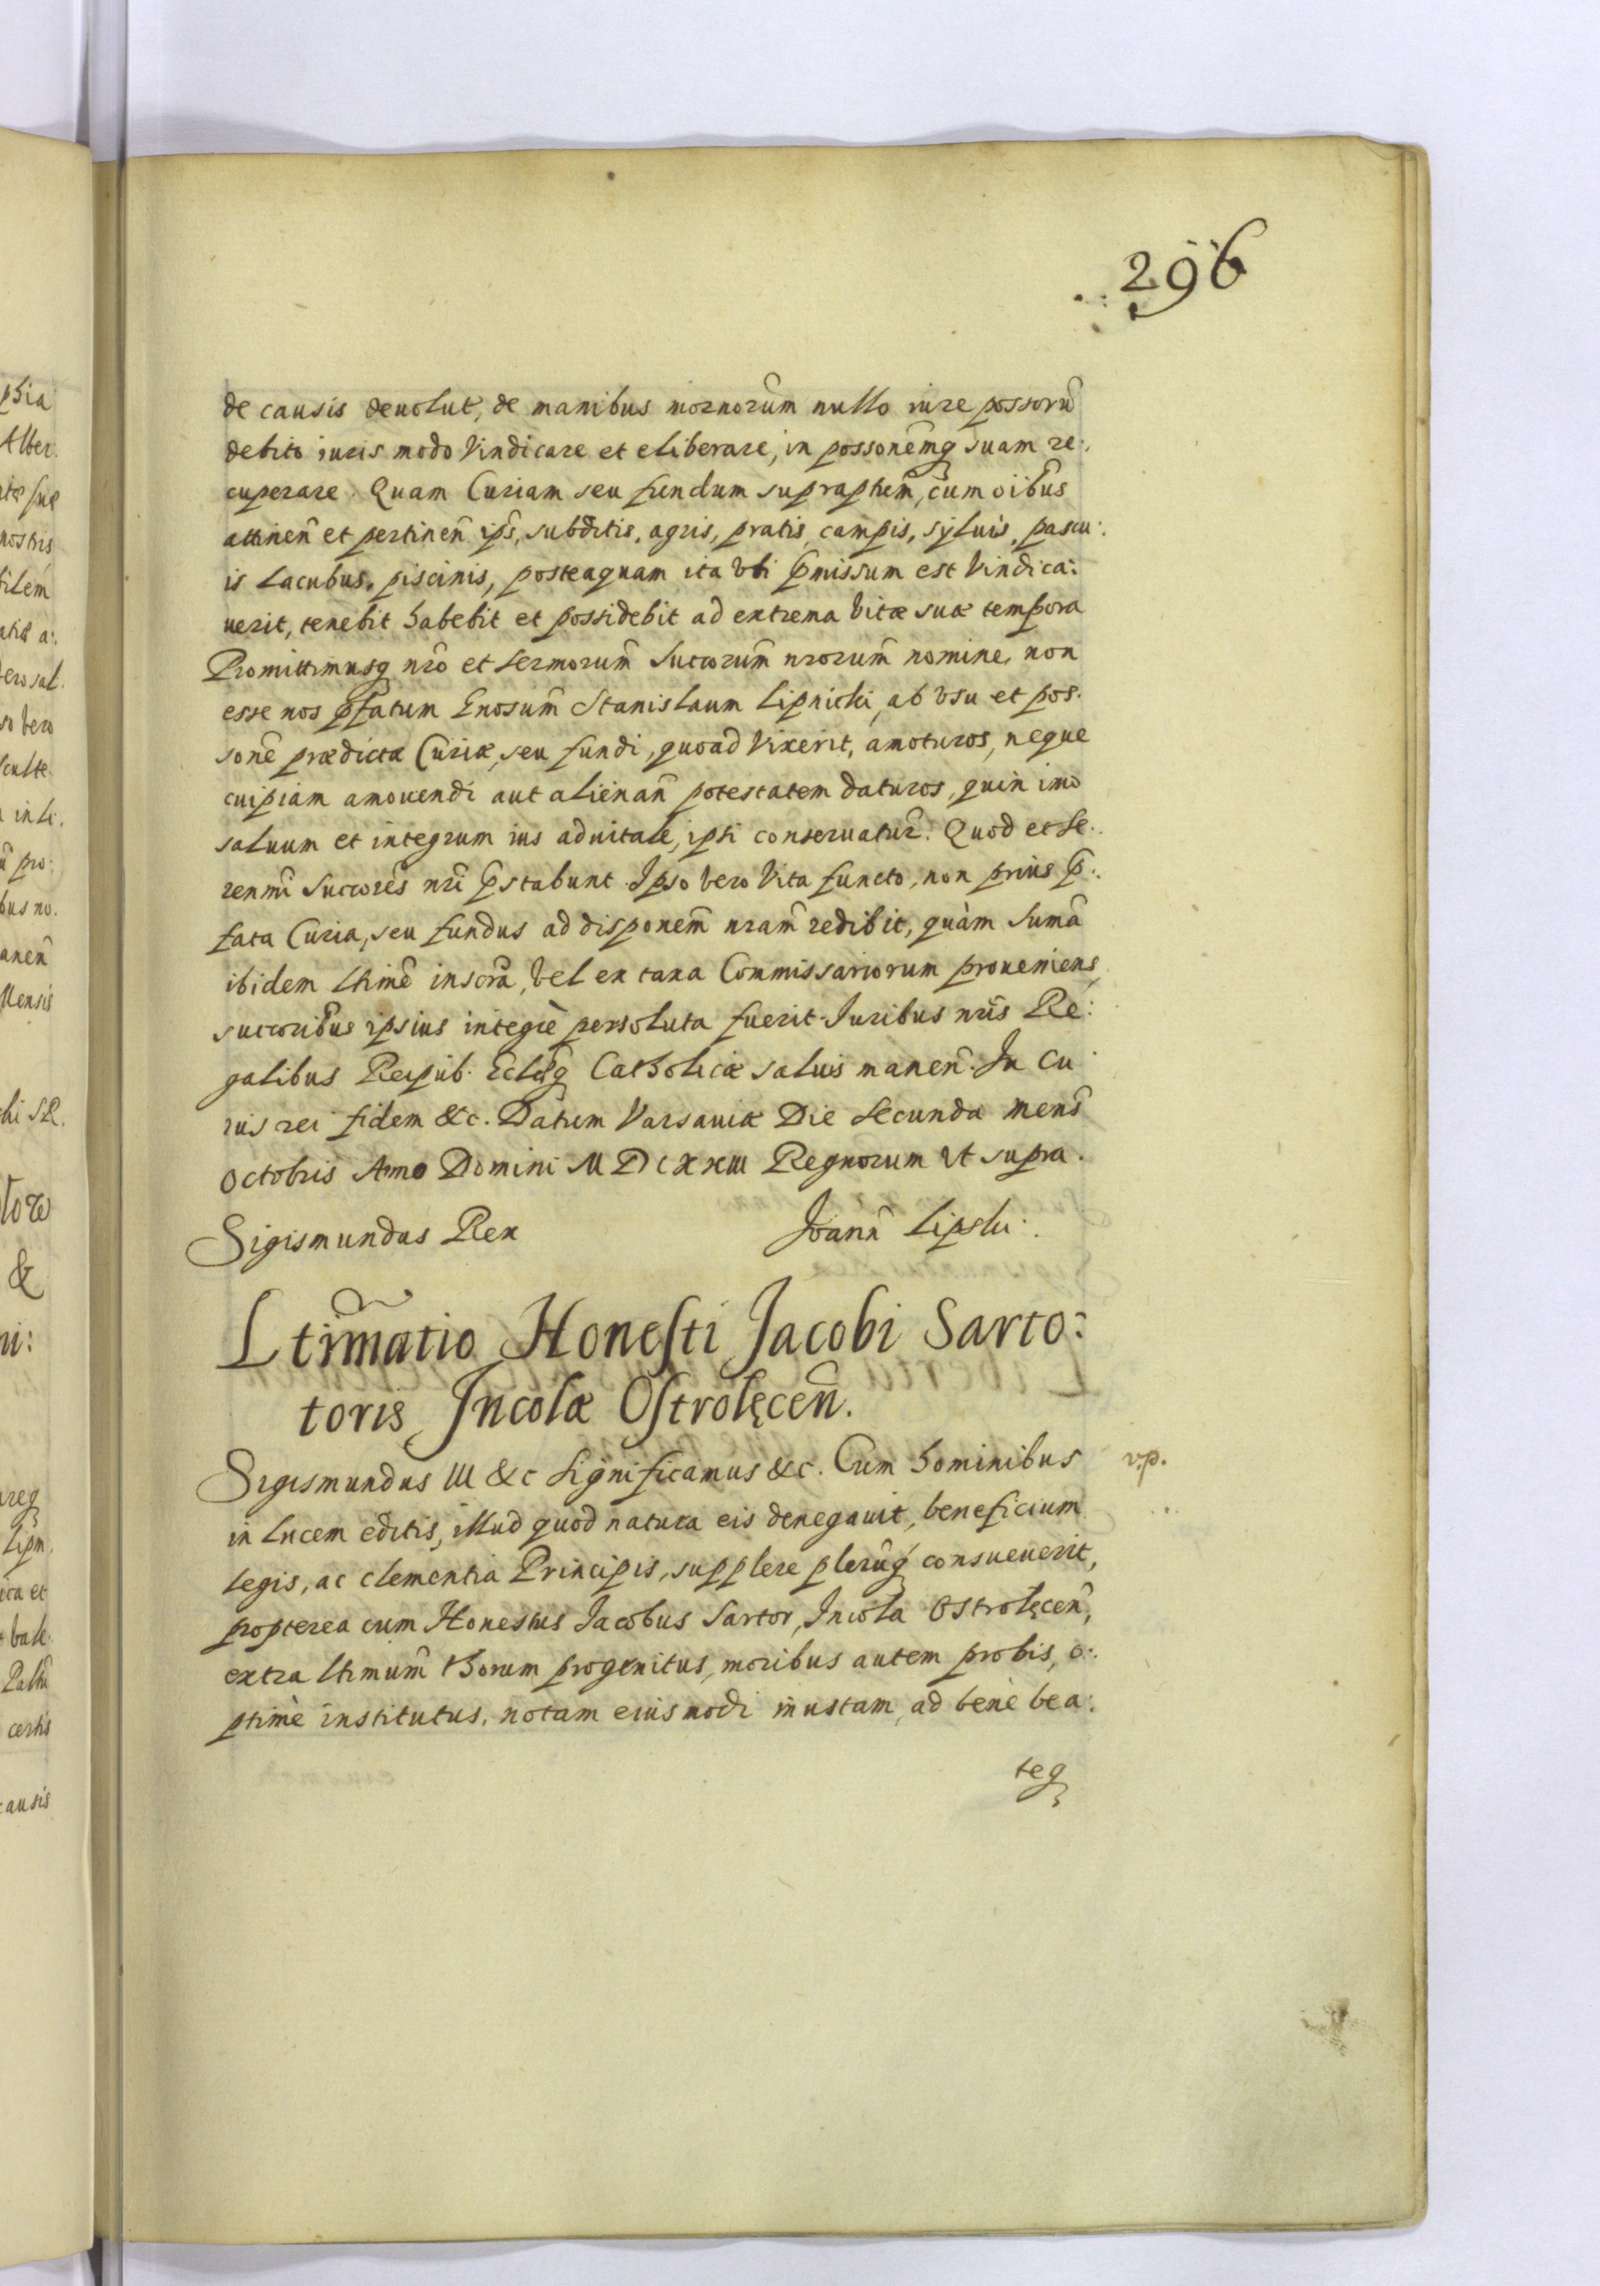 296
de causis deuolut, de manibus mornorum nullo iure possorũ
debito iuris modo Vindicare et eliberare, in possonemq suam re:
cuperare. Quam Curiam seu fundum supraptum, cum oibus
attinen et pertinen ips, subditis, agris, pratis, campis, syluis, pascu:
is Lacubus, piscinis, posteaquam ita Vti pmissum est Vindica:
uerit, tenebit habebit et possidebit ad extrema Vitæ suæ tempora
Promittimusq nro et sermorum Succorum nrorum nomine, non
esse nos pfatum Gnosum Stanislaum Lipnicki, ab Vsu et pos:
sone prædictæ Curiæ, seu fundi, quoad Vixerit, amoturos, neque
cuipiam amouendi aut alienan potestatem daturos, quin imo
saluum et integrum ius aduitale, ipsi conseruatur. Quod et Se:
renmi Succores nri pstabunt. Ipso vero Vita functo, non prius p:
fata Curia, seu fundus ad disponem nram redibit, quàm Suma
ibidem ltime inscra, Vel ex taxa Commissariorum proueniens,
succoribus ipsius integrè persoluta fuerit. Iuribus nris Re:
galibus Reipub. Eclæq Catholicæ saluis manen. In cu
ius rei fidem &c. Datum Varsauiæ Die Secunda mens
Octobris Anno Domini MDCXXIII Regnorum Vt supra.
Sigismundus Rex Joann Lipski.
Ltimatio Honesti Jacobi Sarto:
toris Incolæ Ostrolęcen.
Sigismundus III &c Significamus &c. Cum hominibus
v.p.
in lucem editis, illud quod natura eis denegauit, beneficium
legis, ac clementia Principis, supplere plerũq consueuerit,
propterea cum Honestus Jacobus Sartor, Incola Ostrolęcen,
extra ltimum thorum progenitus, moribus autem probis, o:
ptimè institutus, notam eiusmodi inustam, ad benè bea:
teq